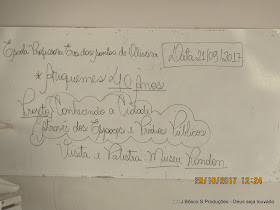 Escola Professora Eva dos Santos de Oliveira Data 21/09/2017
* Ariquemes 40 Anos
Projeto: Conhecendo a Cidade
Através dos Espaços e Prédios Públicos
Visita e Palestra Museu Rondon
20/10/2017 12:34
J Bôsco S Produções - Deus seja louvado